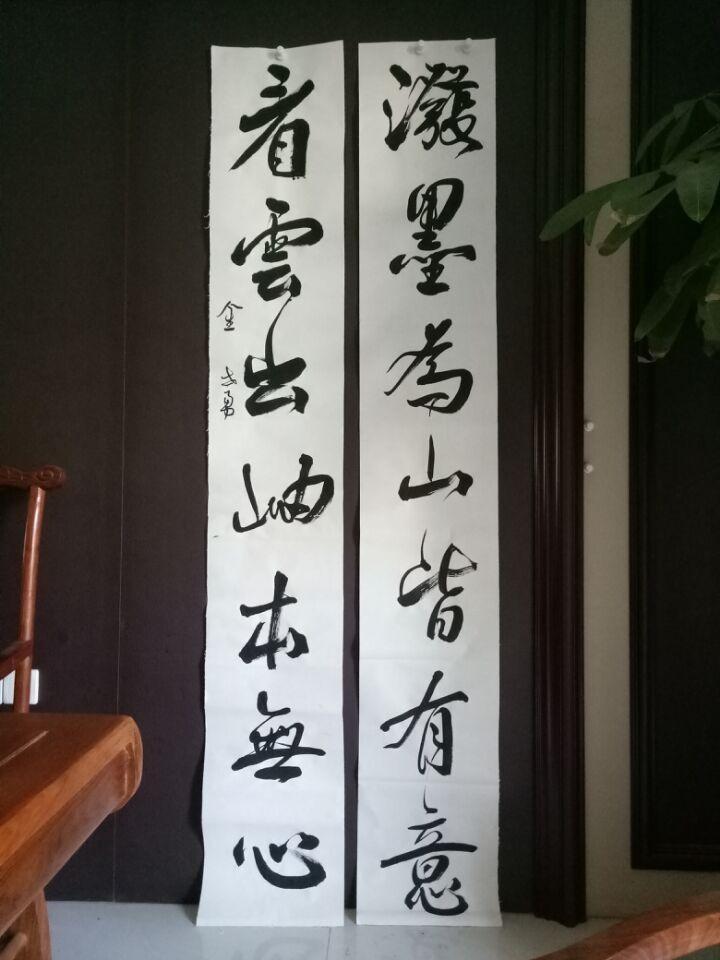 潑墨為山皆有意
看雲出岫本無心
金 勇